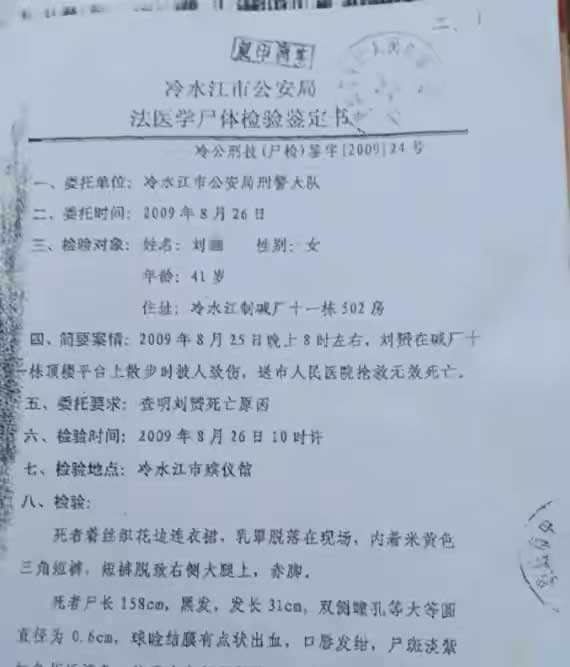 二、
冷水江市公安局
法医学尸体检验鉴定书
冷公刑技(尸检)鉴字[2009]24号
一、委托单位：冷水江市公安局刑警大队
二、委托时间：2009年8月26日
三、检验对象：姓名：刘 性别：女
年龄：41岁
住址：冷水江制碱厂十一栋502房
四、简要案情：2009年8月25日晚上8时左右，刘赟在碱厂十
一栋顶楼平台上散步时被人致伤，送市人民医院抢救无效死亡。
五、委托要求：查明刘赟死亡原因
六、检验时间：2009年8月26日10时许
七、检验地点：冷水江市殡仪馆
八、检验：
死者着丝织花边连衣裙，乳罩脱落在现场，内着米黄色
三角短裤，短裤脱致右侧大腿上，赤脚。
死者尸长158cm，黑发，发长31cm，双侧瞳孔等大等圆
直径为0.6cm，球睑结膜有点状出血，口唇发绀，尸斑淡紫